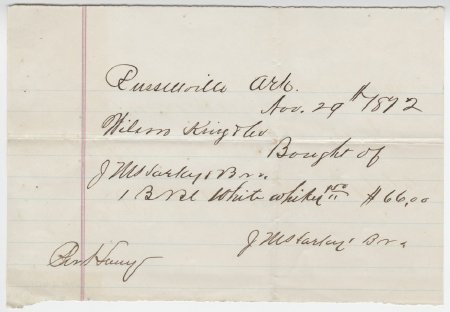 Russellville Ark.
Nov. 29th 1872
Wilson King & Co
Bought of
& Bro
1 BRL White whiskey $66.00
& Bro
Per Henry